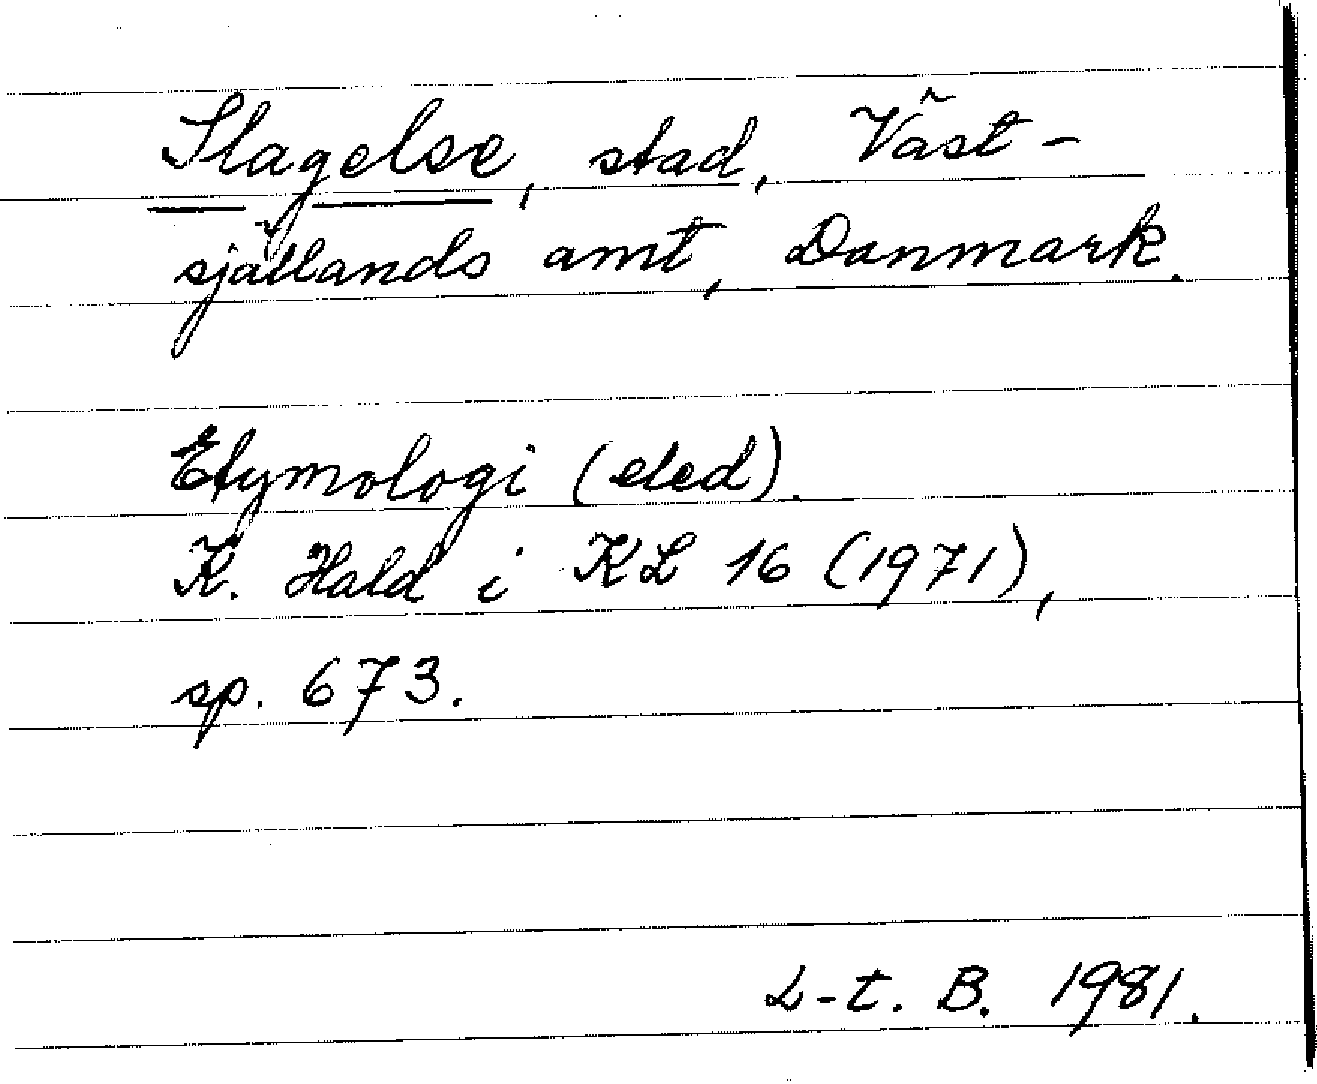 Slagelse, stad, Väst-
själlands amt, Danmark.
Etymologi (eled).
K. Hald i KL 16 (1971),
sp. 673.
L-t. B. 1981.